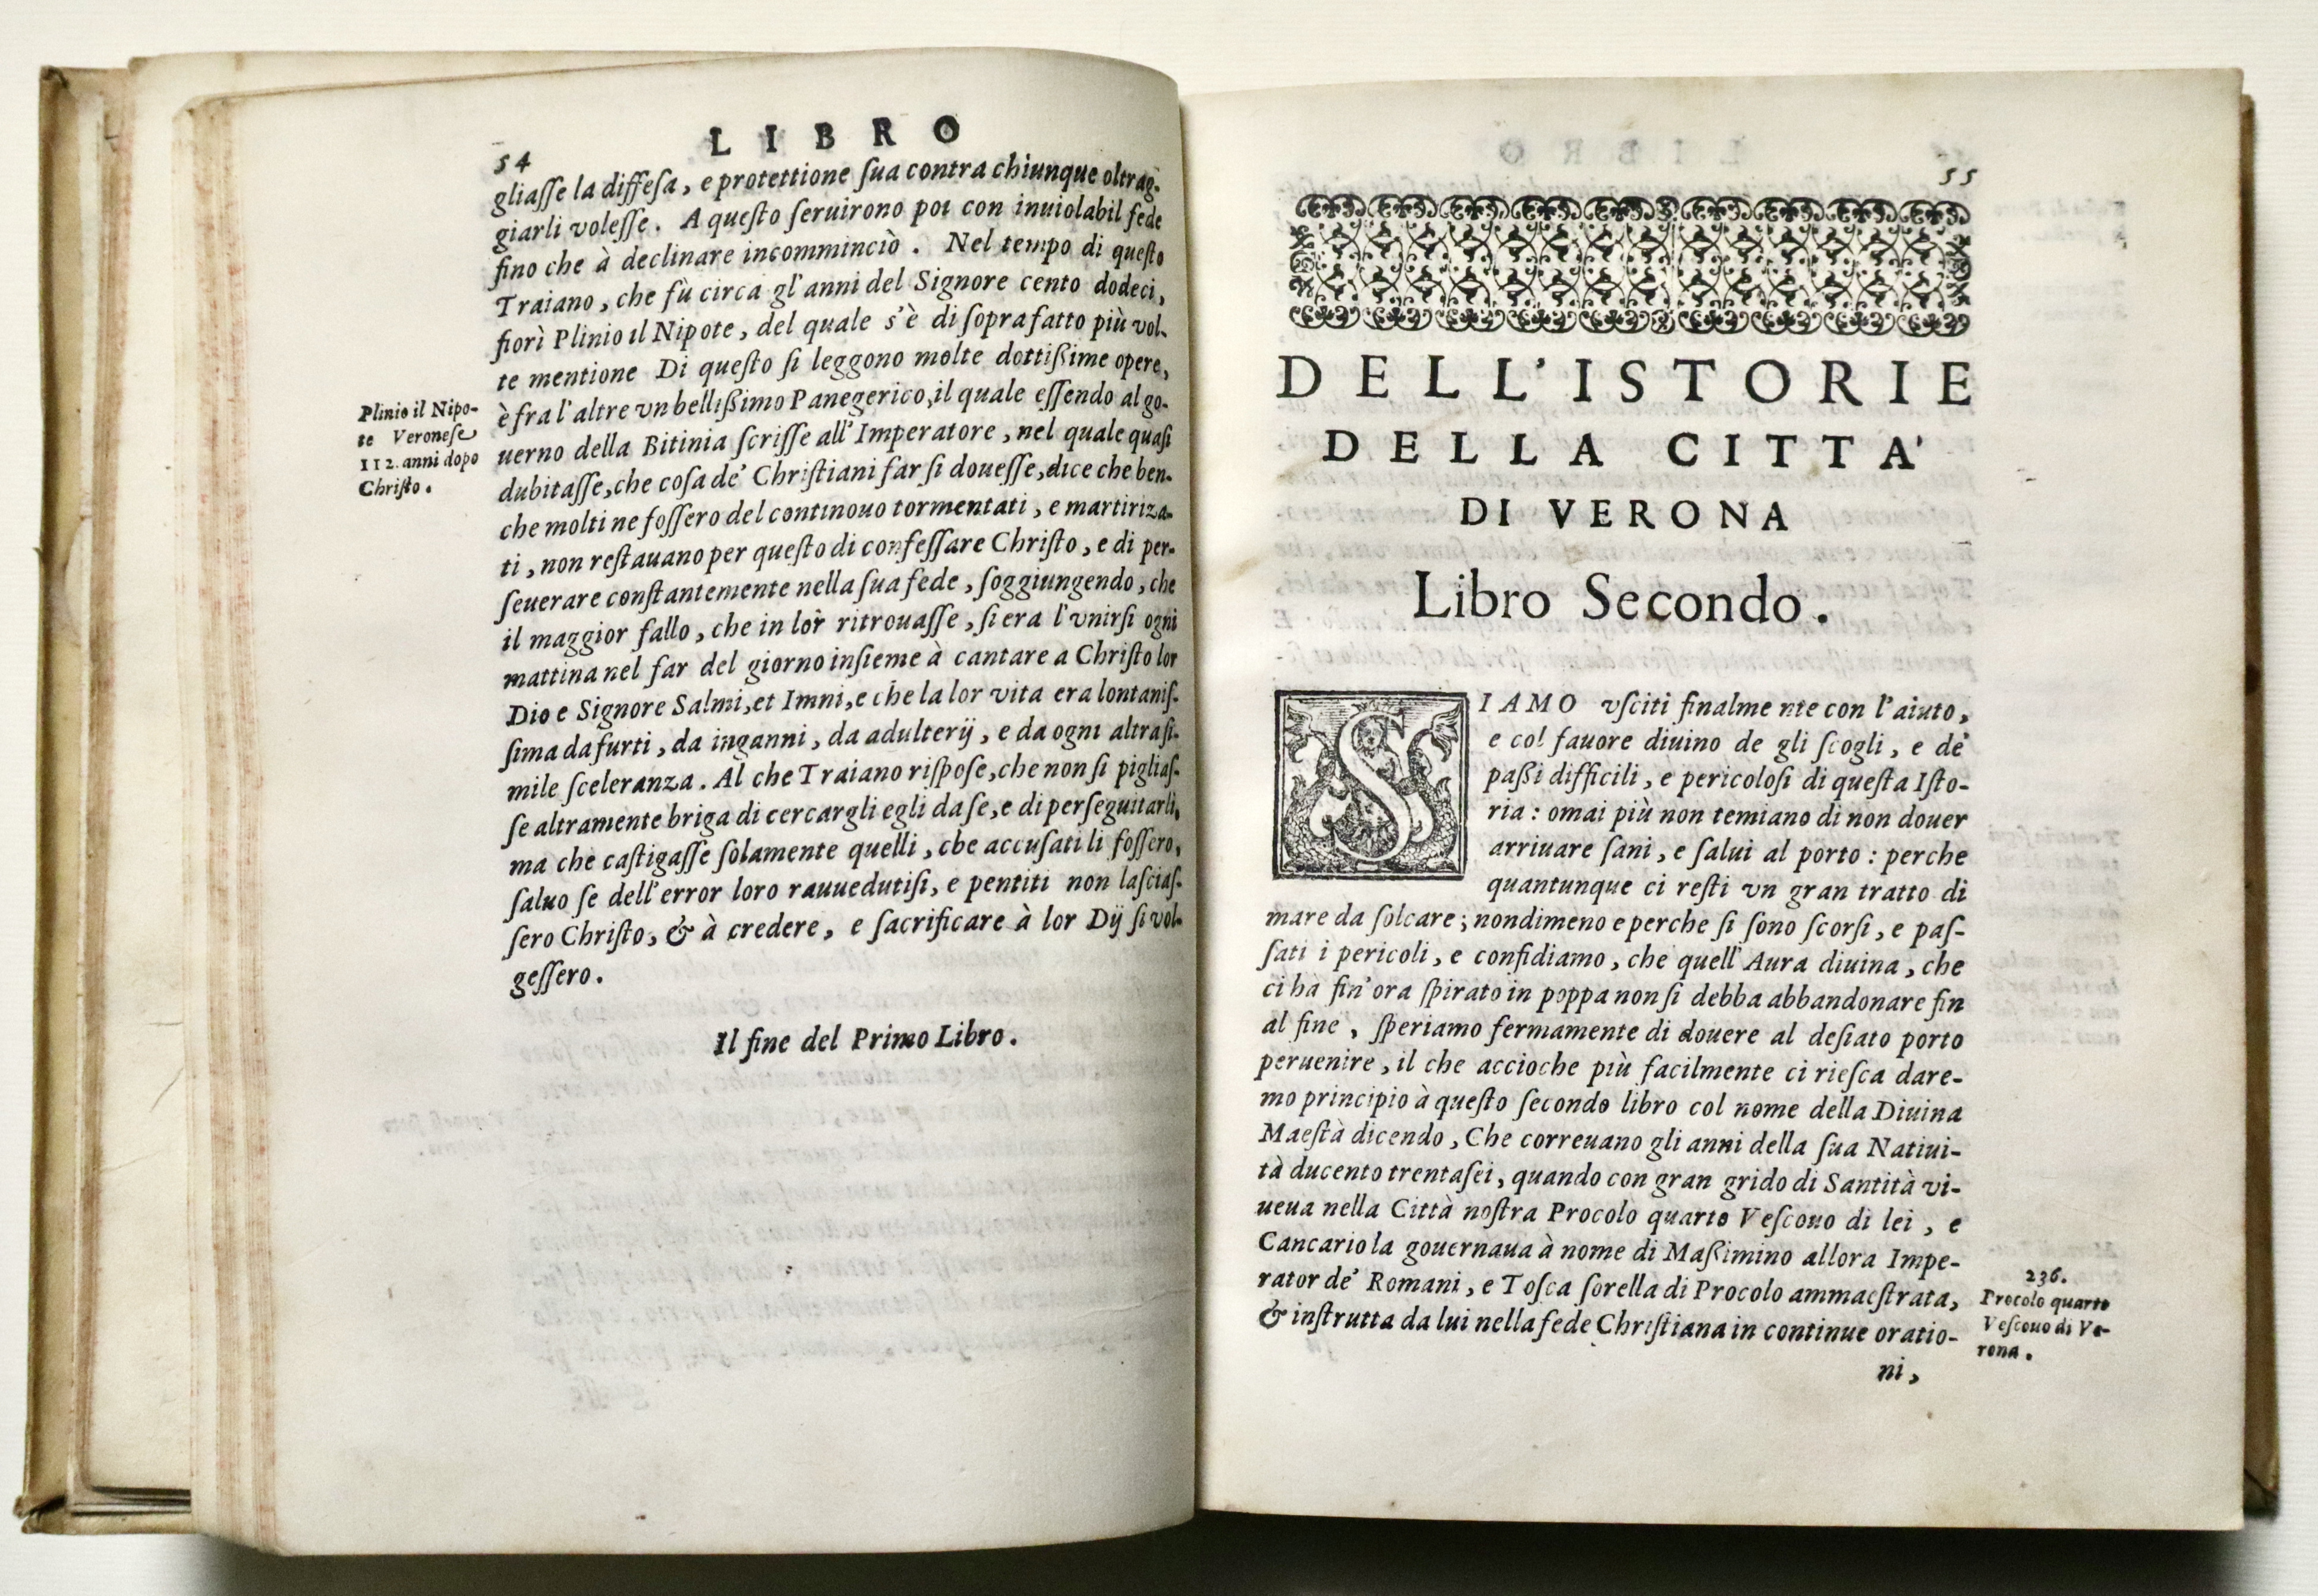 54
LIBRO
gliaſſe la diffeſa, e protettione ſua contra chiunque oltrag-
giarli voleſſe. A queſto ſeruirono poi con inuiolabil fede
fino che à declinare incomminciò. Nel tempo di queſto
Traiano, che fù circa gl'anni del Signore cento dodeci,
fiorì Plinio il Nipote, del quale s'è di ſopra fatto più vol-
te mentione Di queſto ſi leggono molte dottißime opere,
è fra l'altre vn bellißimo Panegerico, il quale eſſendo al go-
uerno della Bitinia ſcriſſe all'Imperatore, nel quale quaſi
dubitaſſe, che coſa de' Chriſtiani far ſi doueſſe, dice che ben-
che molti ne foſſero del continouo tormentati, e martiriza-
ti, non reſtauano per queſto di confeſſare Chriſto, e di per-
ſeuerare conſtantemente nella ſua fede, ſoggiungendo, che
il maggior fallo, che in lor ritrouaſſe, ſi era l'vnirſi ogni
mattina nel far del giorno inſieme à cantare a Chriſto lor
Dio e Signore Salmi, et Imni, e che la lor vita era lontaniſ-
ſima da furti, da inganni, da adulterij, e da ogni altra ſi-
mile ſceleranza. Al che Traiano riſpoſe, che non ſi pigliaſ-
ſe altramente briga di cercargli egli da ſe, e di perſeguitarli,
ma che caſtigaſſe ſolamente quelli, che accuſati li foſſero,
ſaluo ſe dell'error loro rauuedutiſi, e pentiti non laſciaſ-
ſero Chriſto, & à credere, e ſacrificare à lor Dij ſi vol-
geſſero.
Il fine del Primo Libro.
Plinio il Nipo-
te Veroneſe
112. anni dopo
Chriſto.
55
DELL'ISTORIE
DELLA CITTA'
DI VERONA
Libro Secondo.
SIAMO vſciti finalme nte con l'aiuto,
e col fauore diuino de gli ſcogli, e de'
paßi difficili, e pericoloſi di queſta Iſto-
ria: omai più non temiano di non douer
arriuare ſani, e ſalui al porto: perche
quantunque ci reſti vn gran tratto di
mare da ſolcare; nondimeno e perche ſi ſono ſcorſi, e paſ-
ſati i pericoli, e confidiamo, che quell'Aura diuina, che
ci hà fin'ora ſpirato in poppa non ſi debba abbandonare fin
al fine, ſperiamo fermamente di douere al deſiato porto
peruenire, il che accioche più facilmente ci rieſca dare-
mo principio à queſto ſecondo libro col nome della Diuina
Maeſtà dicendo, Che correuano gli anni della ſua Natiui-
tà ducento trentaſei, quando con gran grido di Santità vi-
ueua nella Città noſtra Procolo quarto Veſcouo di lei, e
Cancario la gouernaua à nome di Maßimino allora Impe-
rator de' Romani, e Toſca ſorella di Procolo ammaeſtrata,
& inſtrutta da lui nella fede Chriſtiana in continue oratio-
ni,
236.
Procolo quarto
Veſcouo di Ve-
rona.